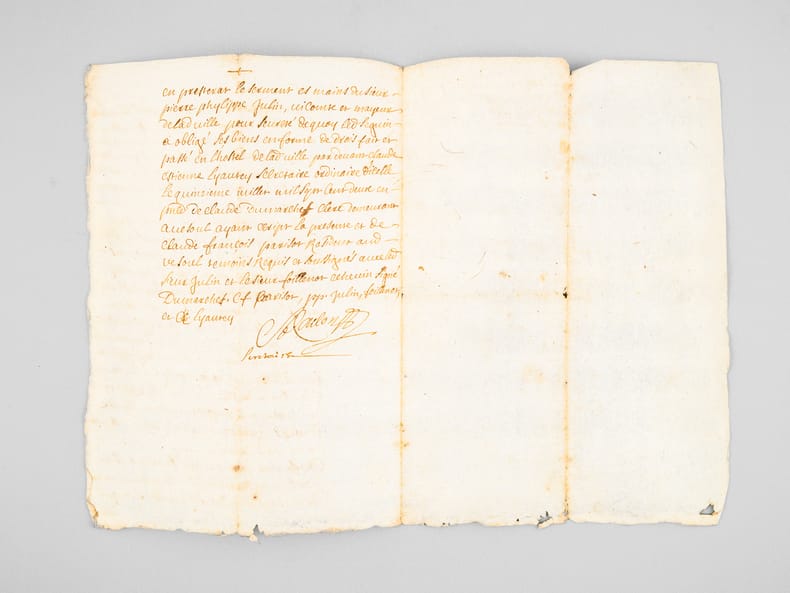 en presterat le serment es mains du sieur
pierre philippe Julin, vicomte et mayeur
de lad ville pour seureté de quoy led Seguin
a obligé ses biens en forme de droit fait et
passé en lhostel de lad ville par devant claude
estienne lyautey secretaire ordinaire dicelle
le quinzieme mil sept cent deux en
de claude Dumarchef clerc demeurant
a vesoul ayant escript la presente et de
claude françois parisot and
vesoul temoins Requis et soussignés avec led
sieur Julin et le sieur foillenot eschevin signé
Dumarchef, Cf parisot, ppe Julin, foillenot,
et Ce lyautey